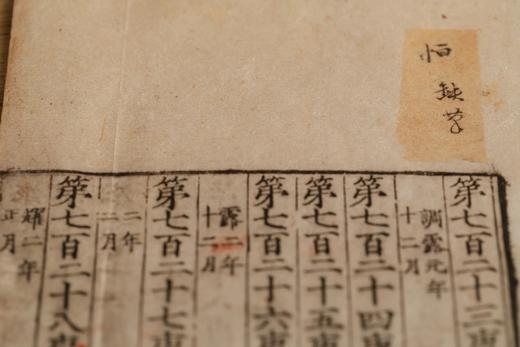 第七百二十三
調露元年
十二月
第七百二十四
第七百二十五
第七百二十六
露二年
十二月
第七百二十七
二年
二月
第七百二十八
耀二年
正月